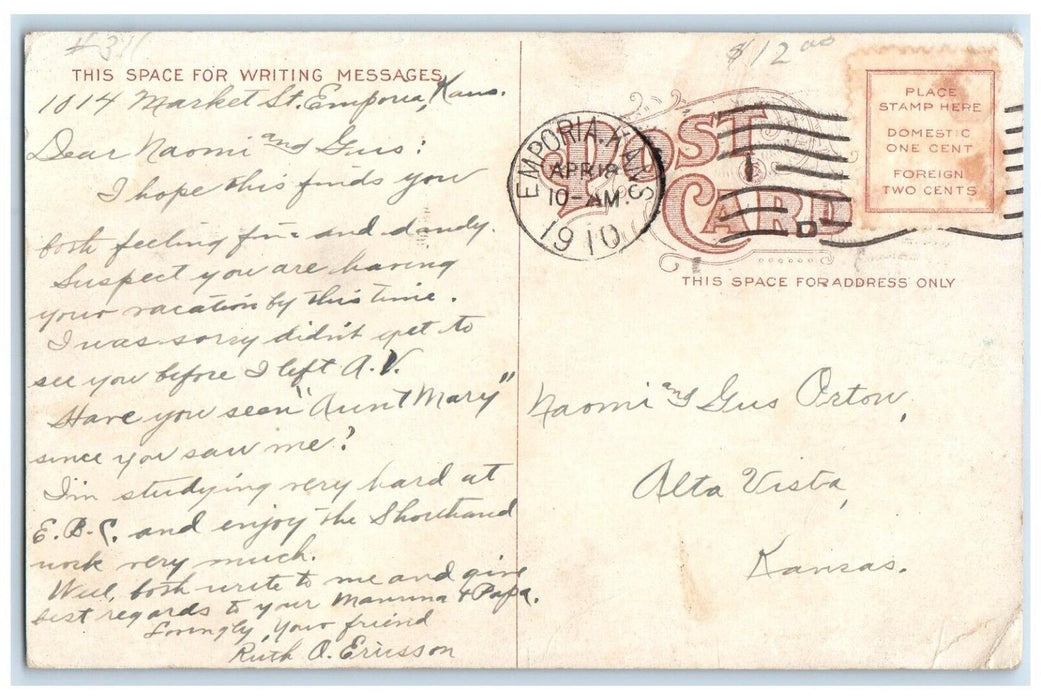 THIS SPACE FOR WRITING MESSAGES
1014 Market St. Emporia, Kans.
Dear Naomi and Gus:
I hope this finds you
both feeling fine and dandy.
Suspect you are having
your vacation by this time.
I was sorry didn't get to
see you before I left A.V.
Have you seen "Aunt Mary"
since you saw me?
I'm studying very hard at
E.B.C. and enjoy the Shorthand
work very much.
Well, both write to me and give
best regards to your Mamma & Papa.
Lovingly, your friend
Ruth O. Ericsson
$12.00
POST CARD
EMPORIA, KANS
APR 18
10-AM
1910
PLACE
STAMP HERE
DOMESTIC
ONE CENT
FOREIGN
TWO CENTS
THIS SPACE FOR ADDRESS ONLY
Naomi and Gus Orton,
Alta Vista,
Kansas.